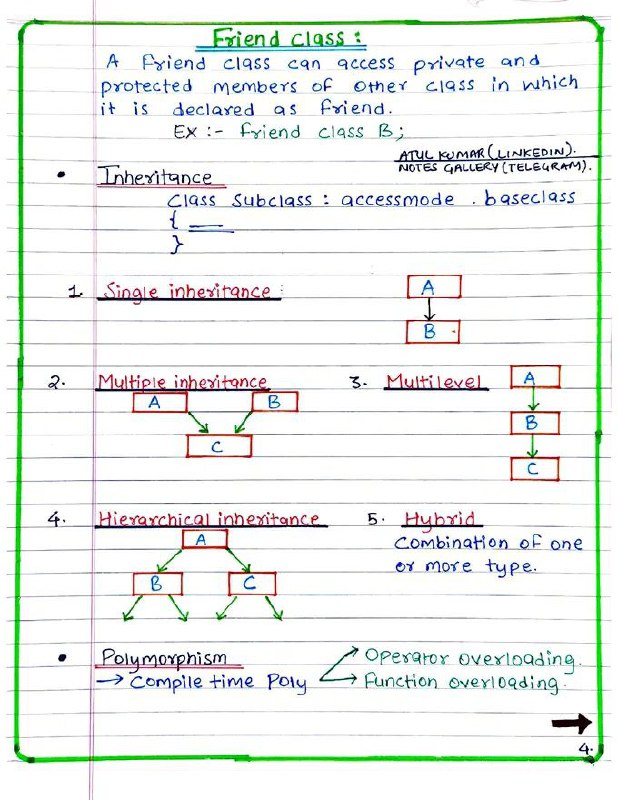 Friend class :
A Friend class can access private and
protected members of other class in which
it is declared as friend.
Ex :- friend class B;
ATUL KUMAR (LINKEDIN).
NOTES GALLERY (TELEGRAM).
• Inheritance
Class Subclass : accessmode . baseclass
{ __
}
1. Single inheritance :
A
B
2. Multiple inheritance
A B
C
3. Multilevel
A
B
C
4. Hierarchical inheritance
A
B C
5. Hybrid
Combination of one
or more type.
• Polymorphism
→ Compile time Poly
Operator overloading.
Function overloading.
4.